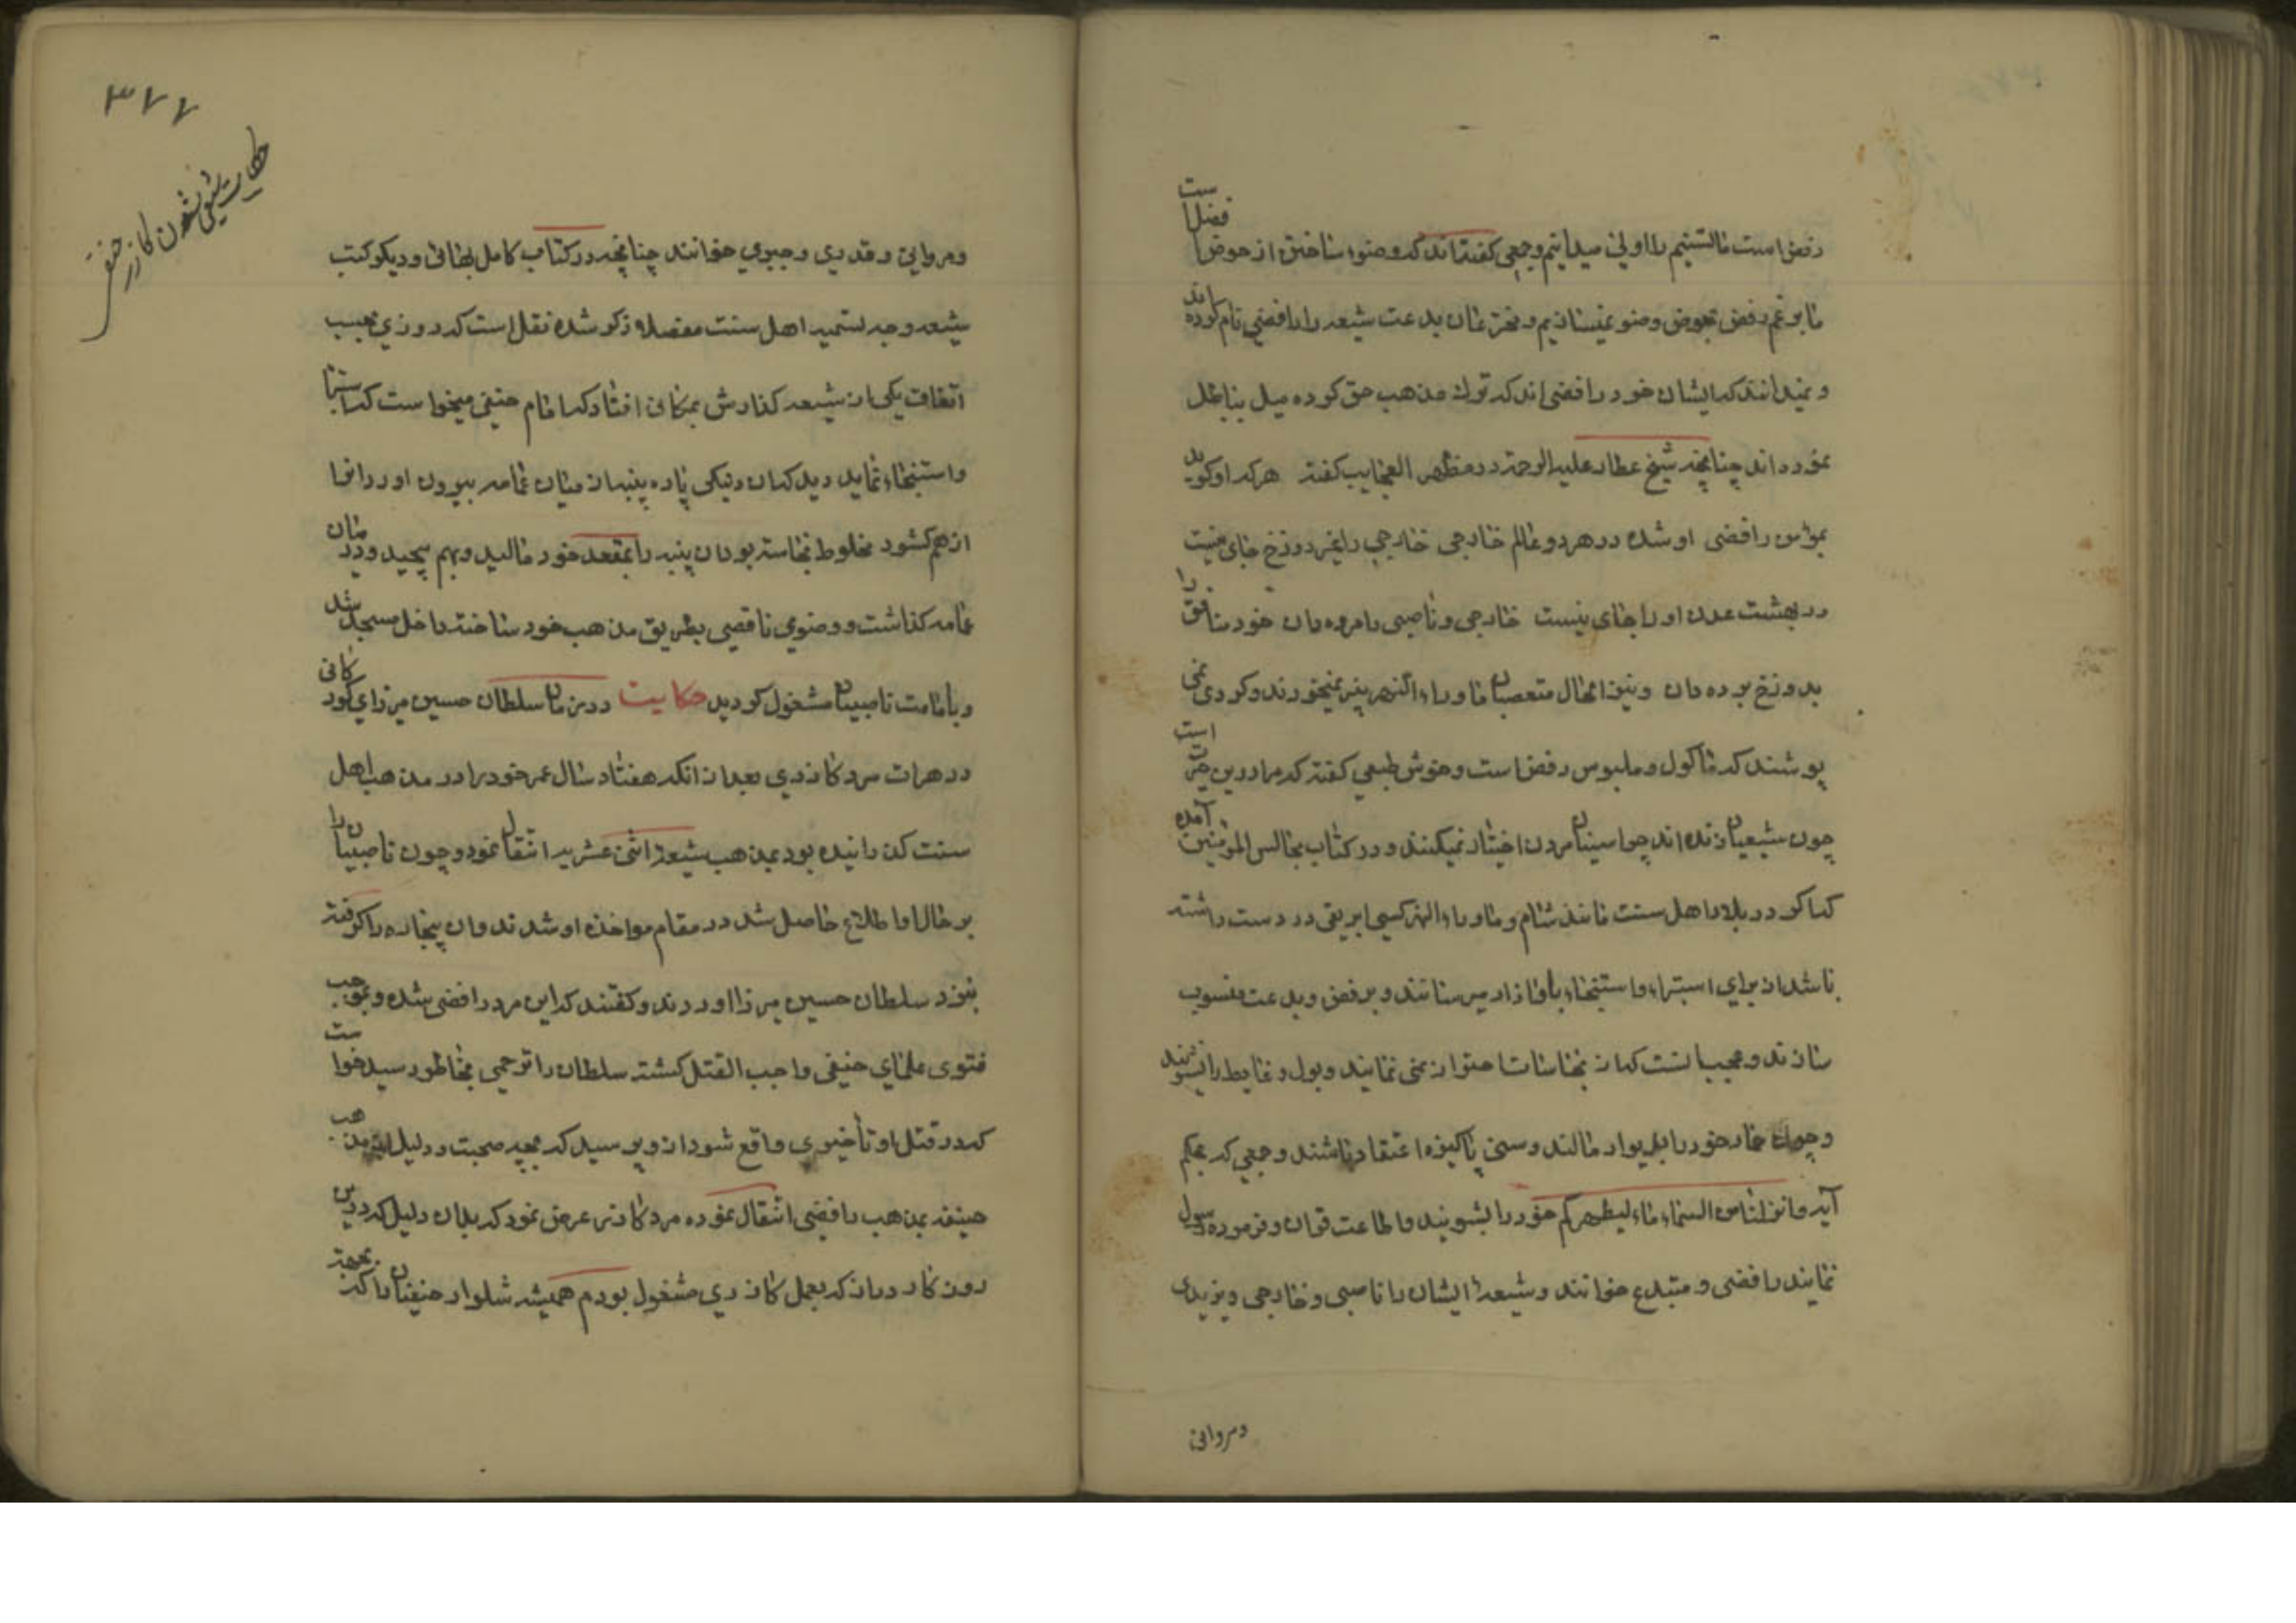 رفض است ما التسنیم را اولی میدانیم و جمعی گفته‌اند که وضوء ساختن از حوض افضل است
ما برغم رفض بحوض وضو نمیسازیم و بدعت شیعه را رافضی نام کرده‌اند
و نمیدانند که ایشان خود رافضی‌اند که ترک مذهب حق کرده میل بباطل
نموده‌اند چنانچه شیخ عطار علیه الرحمة در مظهر العجایب گفته هر که او کوید
بمؤمن رافضی او شده در هر دو عالم خارجی خارجی را غیر دوزخ جای نیست
در بهشت عدن او را جای نیست خارجی و ناصبی را مرده دان خود منافق را
بدوزخ برده دان و نیز اعمال متعصبان ماوراء النهر پنیر نمیخورند و کردی نمی
پوشند که ماکول و ملبوس رفض است و خوش طبعی گفته که مرا درین حیرت است
چون شیعیان زنده‌اند چرا سنیان مردن اختیار نمیکنند و در کتاب مجالس المؤمنین آمده
که اگر در بلاد اهل سنت مانند شام و ماوراء النهر کسی ابریقی در دست داشته
باشد از برای استبراء و استنجاء با و آزار میرسانند و برفض و بدعت منسوب
سازند و عجب آنست که از نجاسات احتراز نمی نمایند و بول و غایط را نشویند
و چون خود را بدیوار مالند و سنی پاکیزه اعتقاد باشند و جمعی که بحکم
آیه و انزلنا من السماء ماء لیطهرکم خود را بشویند و اطاعت قرآن و فرموده رسول
نمایند رافضی و مبتدع خوانند و شیعه ایشان را ناصبی و خارجی و یزیدی
و مروانی
۳۷۷
و مروانی و قدری و جبری خوانند چنانچه در کتاب کامل بهائی و دیگر کتب
شیعه وجه تسمیه اهل سنت مفصلا ذکر شده نقل است که روزی بحسب
اتفاق یکی از شیعه گذارش بمکانی افتاد که امام حنفی میخواست که استبرا
و استنجاء نماید دید که آن پاره پنبه از میان عمامه بیرون آورد آنرا
از هم گشود مخلوط نجاست بود آن پنبه را بمقعد خود مالید و بهم پیچید و در میان
عمامه گذاشت و وضوی ناقصی بطریق مذهب خود ساخته داخل مسجد شد
و بامامت ناصبیان مشغول گردید حکایت در زمان سلطان حسین میرزای گورکانی
در هرات مرد گازری بعد از آنکه هفتاد سال عمر خود را در مذهب اهل
سنت گذرانیده بود بمذهب شیعه اثنی عشریه انتقال نمود و چون ناصبیان را
بر حال او اطلاع حاصل شد در مقام مواخذه او شدند و آن بیچاره را گرفته
بنزد سلطان حسین میرزا آوردند و گفتند که این مرد رافضی شده و بموجب
فتوی علمای حنفی واجب القتل گشته سلطان را ترحمی بخاطر رسید خواست
که در قتل او تأخیری واقع شود از و پرسید که بچه حجت و دلیل از مذهب
حنیفه بمذهب رافضی انتقال نموده مرد گازر عرض نمود که بدان دلیل که درین
روزگار دراز که بعمل گازری مشغول بودم همیشه شلوار حنفیان را که بجهة